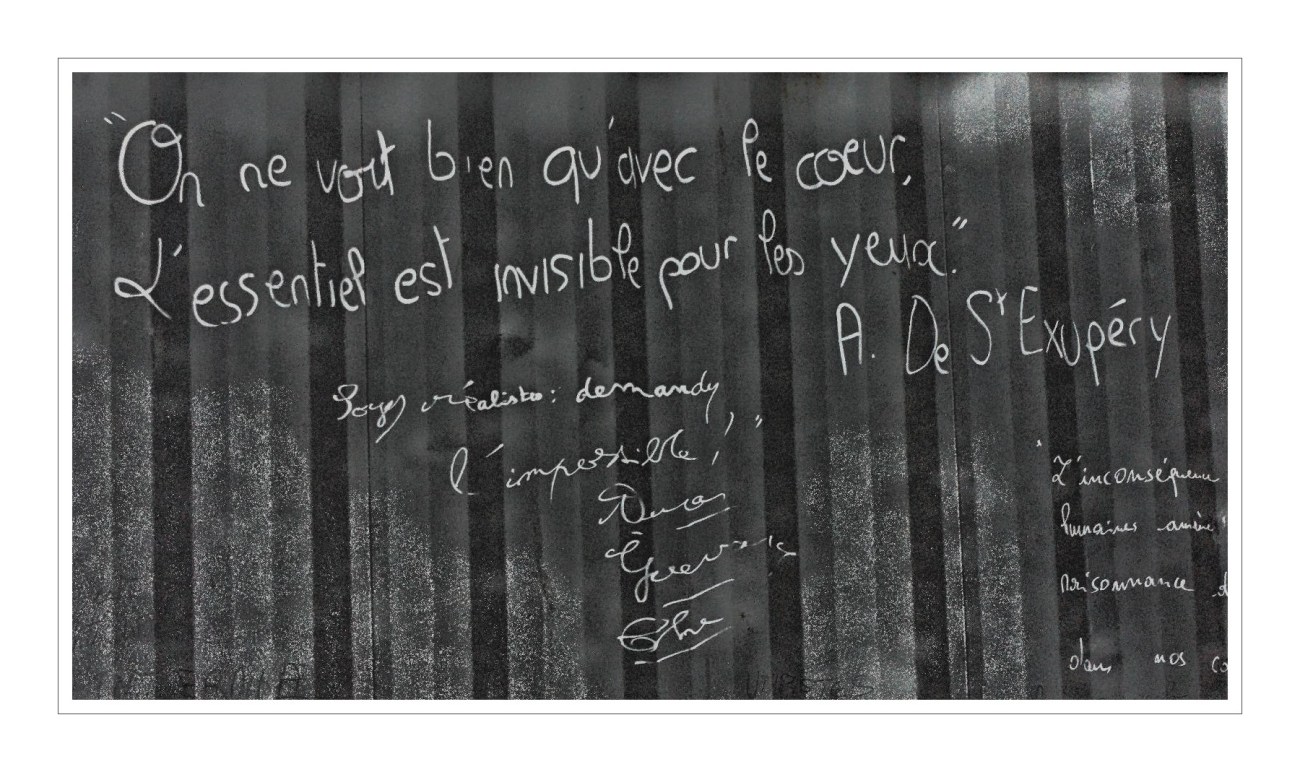 "On ne voit bien qu'avec le coeur,
L'essentiel est invisible pour les yeux."
A. De St Exupéry
Soyez réalistes : demandez
l'impossible !"
Che
Guevara
"L'inconséquence
humaines
raisonnance
dans nos